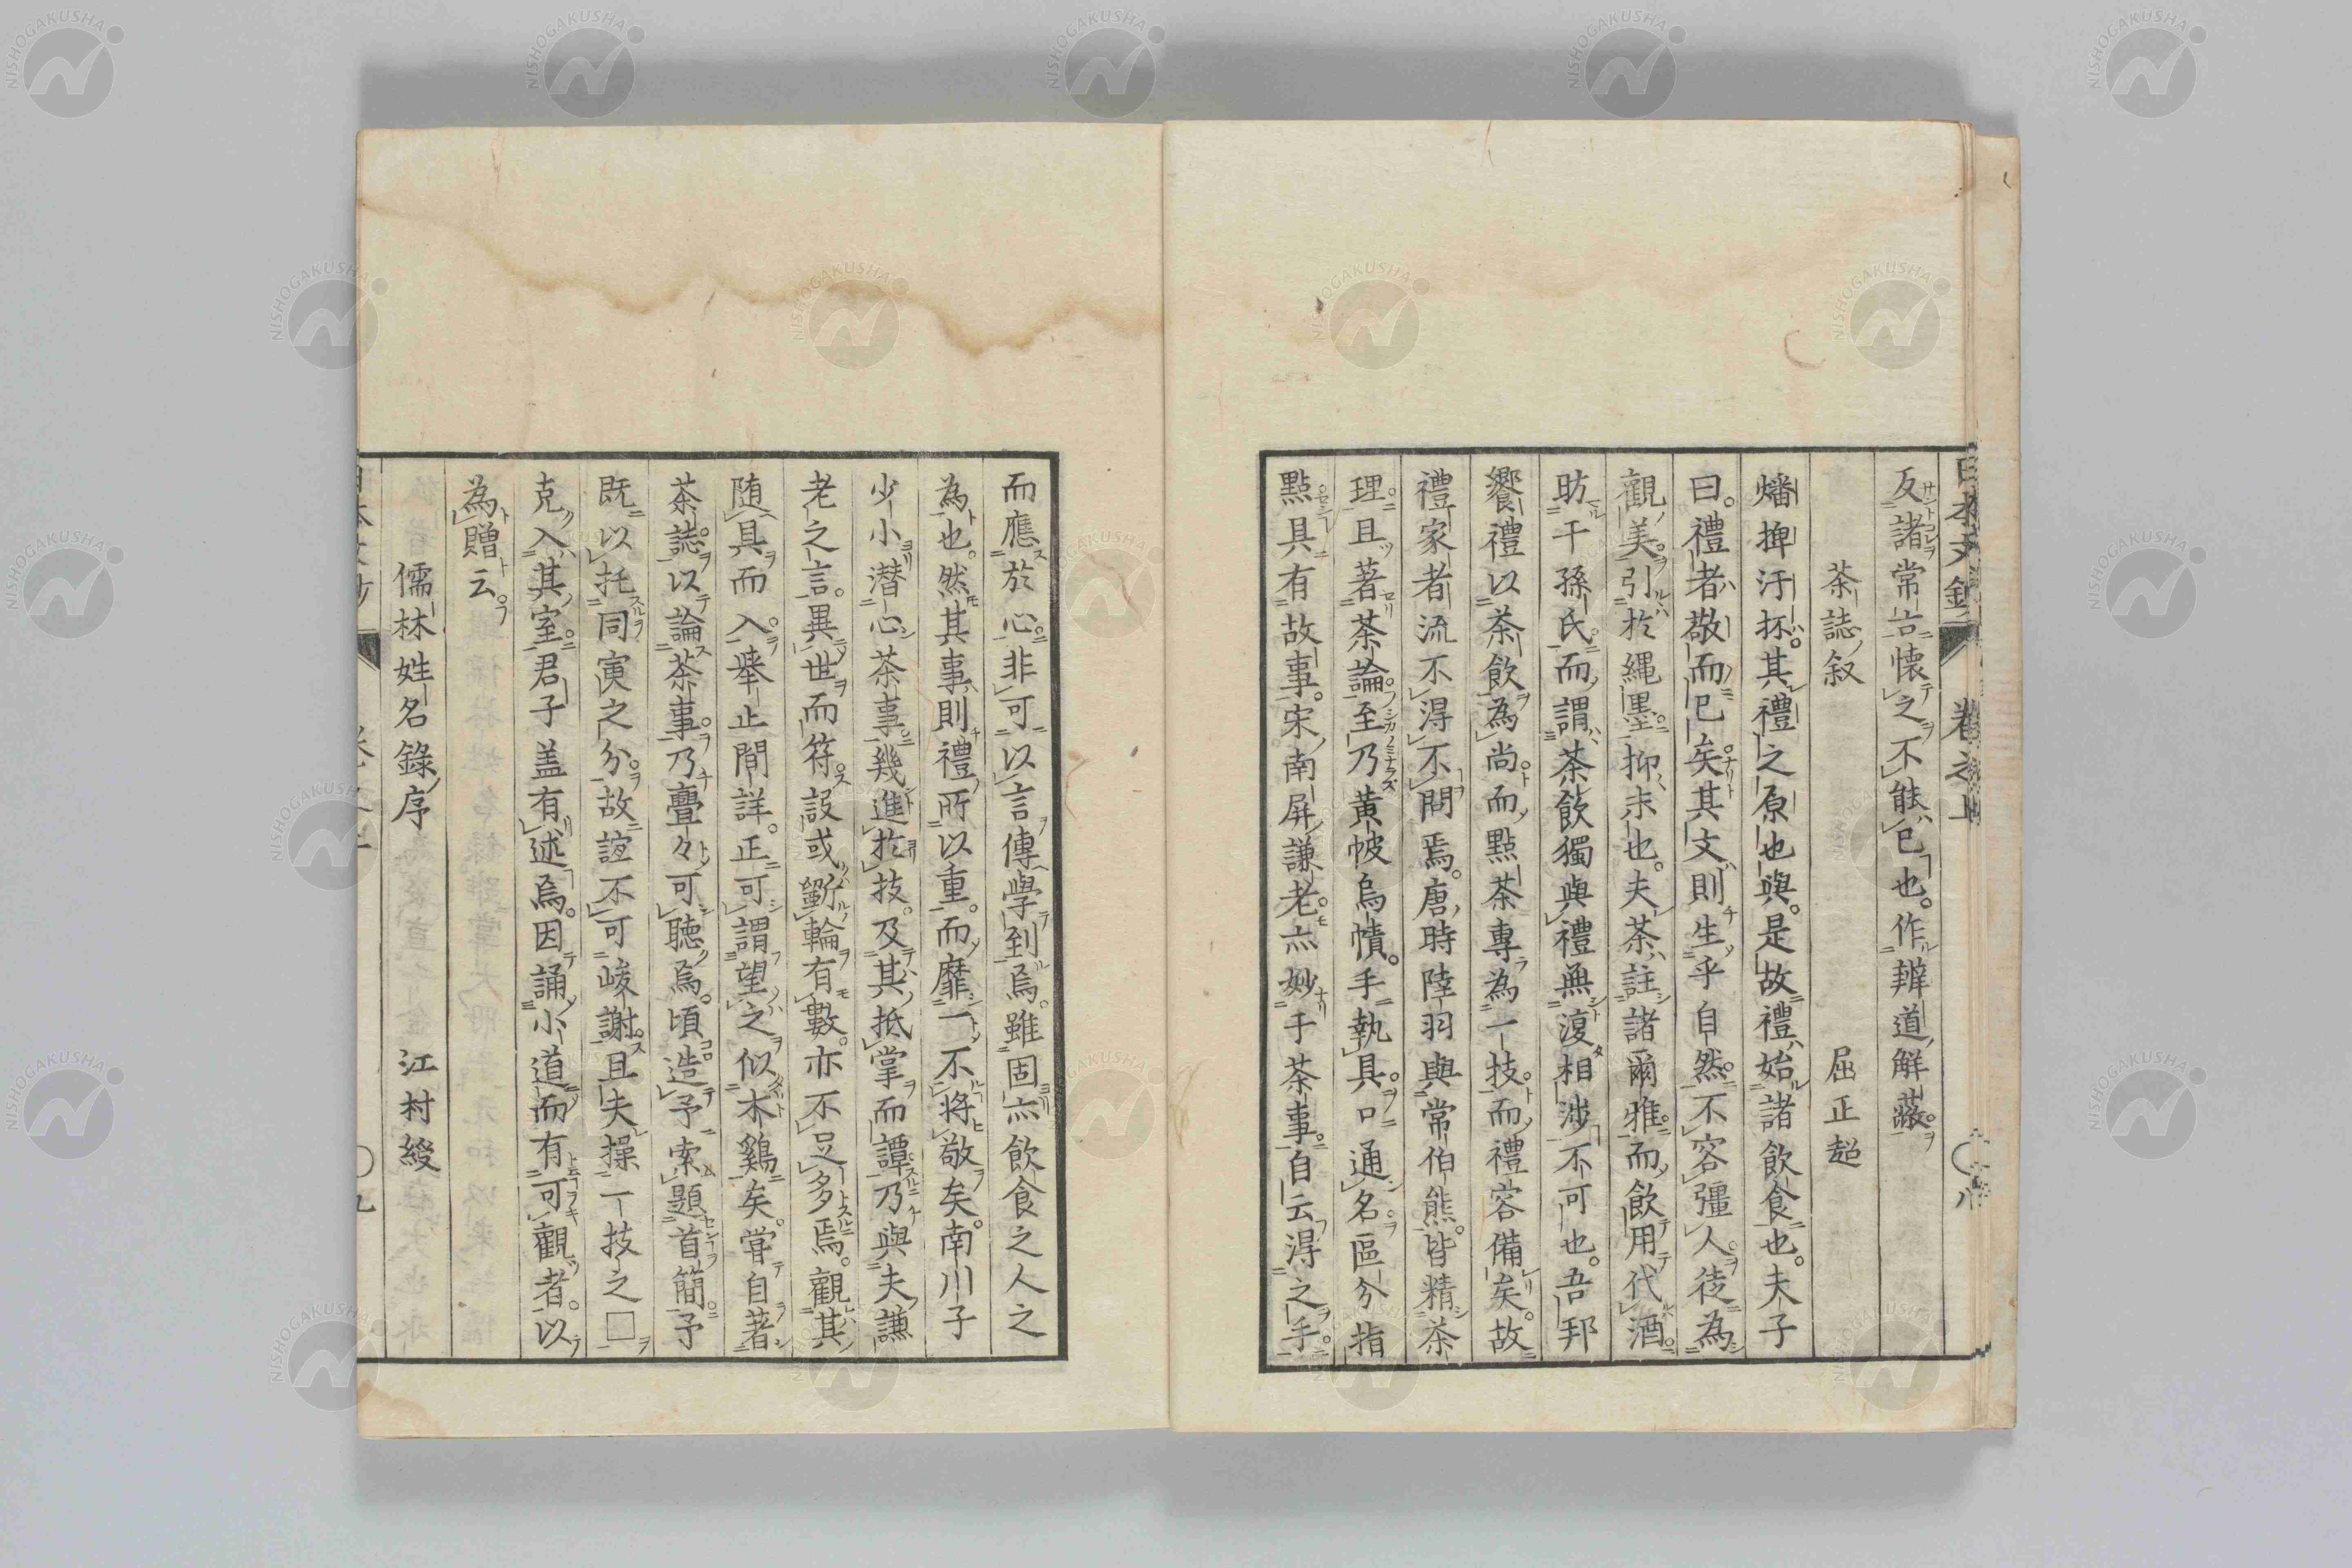 日本文鈔 卷之上 〇八
反諸常言懷之不能已也。作辨道解蔽。
茶誌叙 屈正超
燔捭汙抔。其禮之原也與。是故禮始諸飲食也。夫子
曰。禮者敬而已矣其文則生乎自然。不容彊人徒為
觀美引於繩墨抑末也。夫茶註諸爾雅而飲用代酒
昉于孫氏而謂茶飲獨與禮無復相渉不可也。吾邦
饗禮以茶飲為尚而點茶專為一技而禮容備矣。故
禮家者流不得不問焉。唐時陸羽與常伯熊。皆精茶
理。且著茶論至乃黄帔烏幘。手執具。口通名區分指
點具有故事。宋南屏謙老亦妙于茶事自云得之手。
而應於心非可以言傳學到焉。雖固亦飲食之人之
為也。然其事則禮所以重。而靡一不將敬矣。南川子
少小潛心茶事幾進於技。及其抵掌而譚乃與夫謙
老之言。異世而符設或斲輪有數。亦不足多焉。觀其
随具而入舉止間詳。正可謂望之似木鷄矣。嘗自著
茶誌以論茶事乃亹々可聽焉。頃造予索題首簡予
既以托同寅之分。故誼不可峻謝且夫操一技之□
克入其室君子盖有述焉。因誦小道而有可觀者。以
為贈云。
儒林姓名錄序 江村綬
〇九